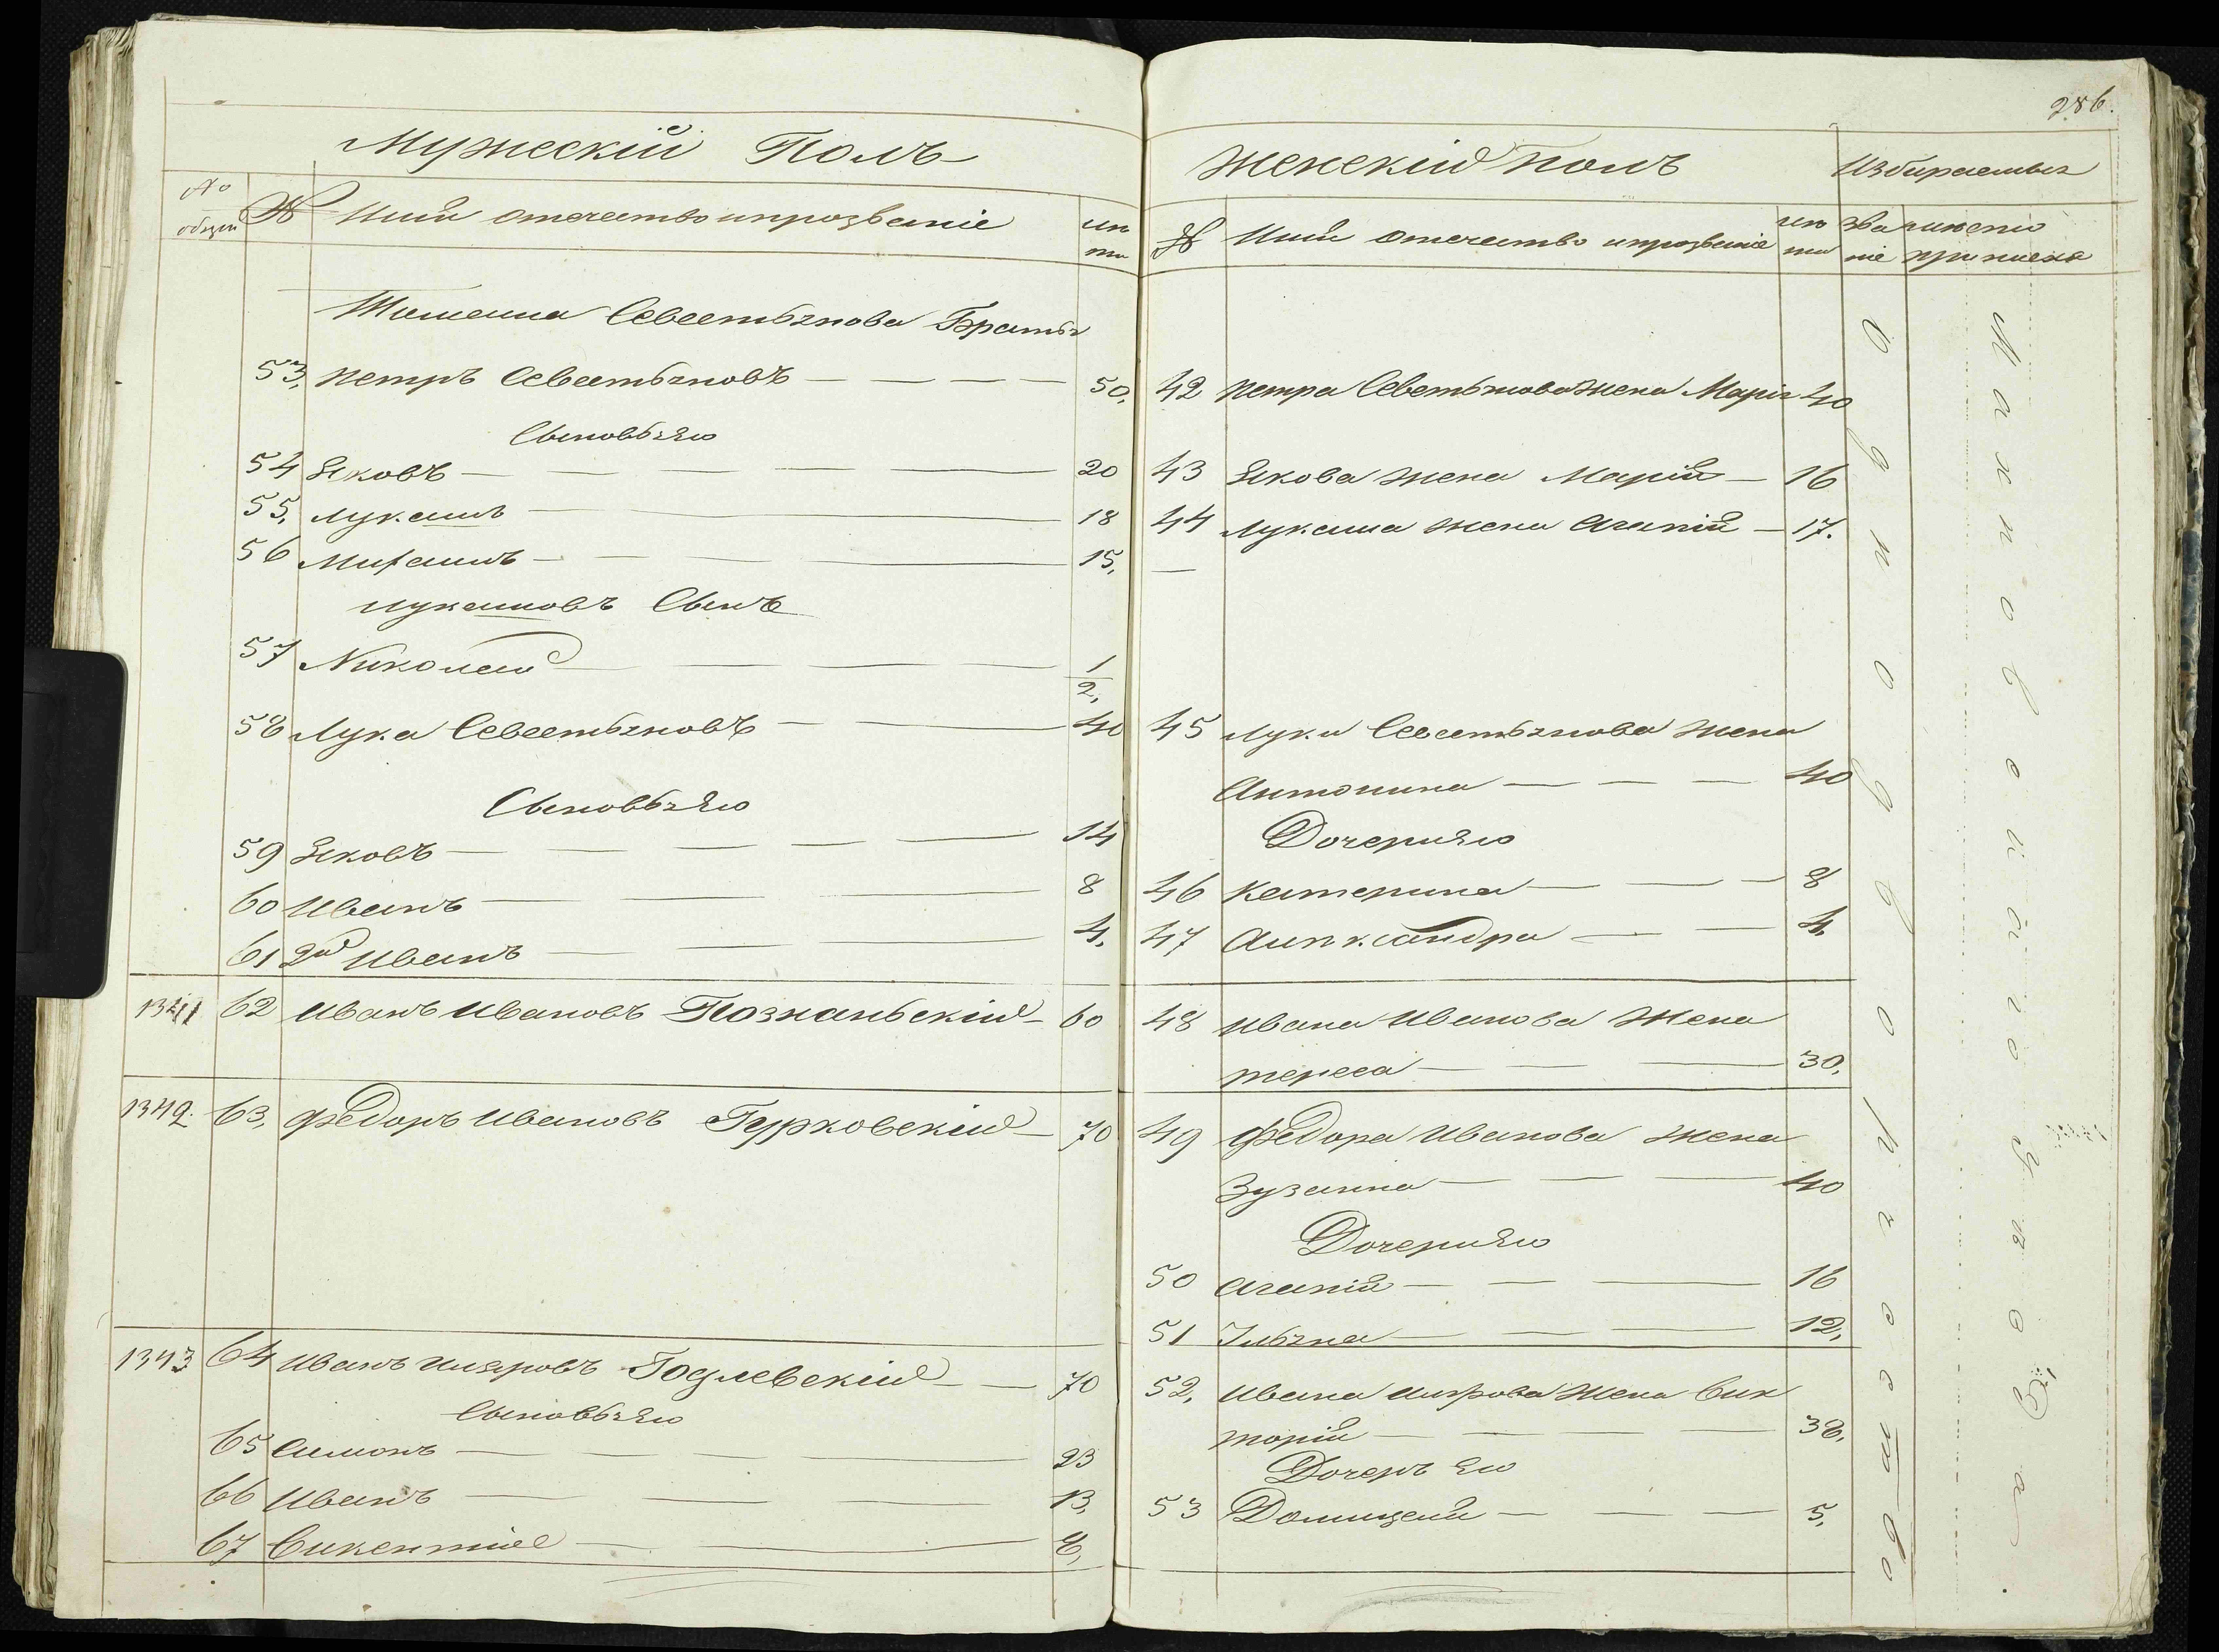 286.
Мужескій Полъ
№ общій
№
Имя отечество и прозваніе
лѣ та
Томаша Севестьянова Братья
53, Петръ Севестьяновъ 50,
Сыновья Ею
54 Яковъ 20
55, Лукашъ 18
56 Михаилъ 15,
Лукашовъ Сынъ
57 Николай 1/2,
58 Лука Севестьяновъ 40
Сыновья Ею
59 Яковъ 14
60 Иванъ 8
61 2й Иванъ 4,
1341 62 Иванъ Ивановъ Познаньскій 60
1342 63, Федоръ Ивановъ Гурковскій 70
1343 64 Иванъ Годлевскій 70
Сыновья Ею
65 Симонъ 23
66 Иванъ 13,
67 Викентий
Женскій полъ
№ Имя отечество и прозваніе
лѣ та
Избираемыя
зва ніе
приписка
42 Петра Севестьянова жена Марія 40
43 Якова жена Марія 16
44 Лукаша жена Агапія 17.
45 Луки Севестьянова жена
Антонина 40
Дочери Ею
46 Катерина 8
47 Александра 4,
48 Ивана Иванова жена
Тереса 30,
49 Федора Иванова жена
Зузанна 40
Дочери Ею
50 Агапія 16
51 Ульяна 12,
52, Ивана жена Вик
торія 38,
Дочеръ Ею
53 Доміцеля 5,
Однодворчество
Махновскаго уезда